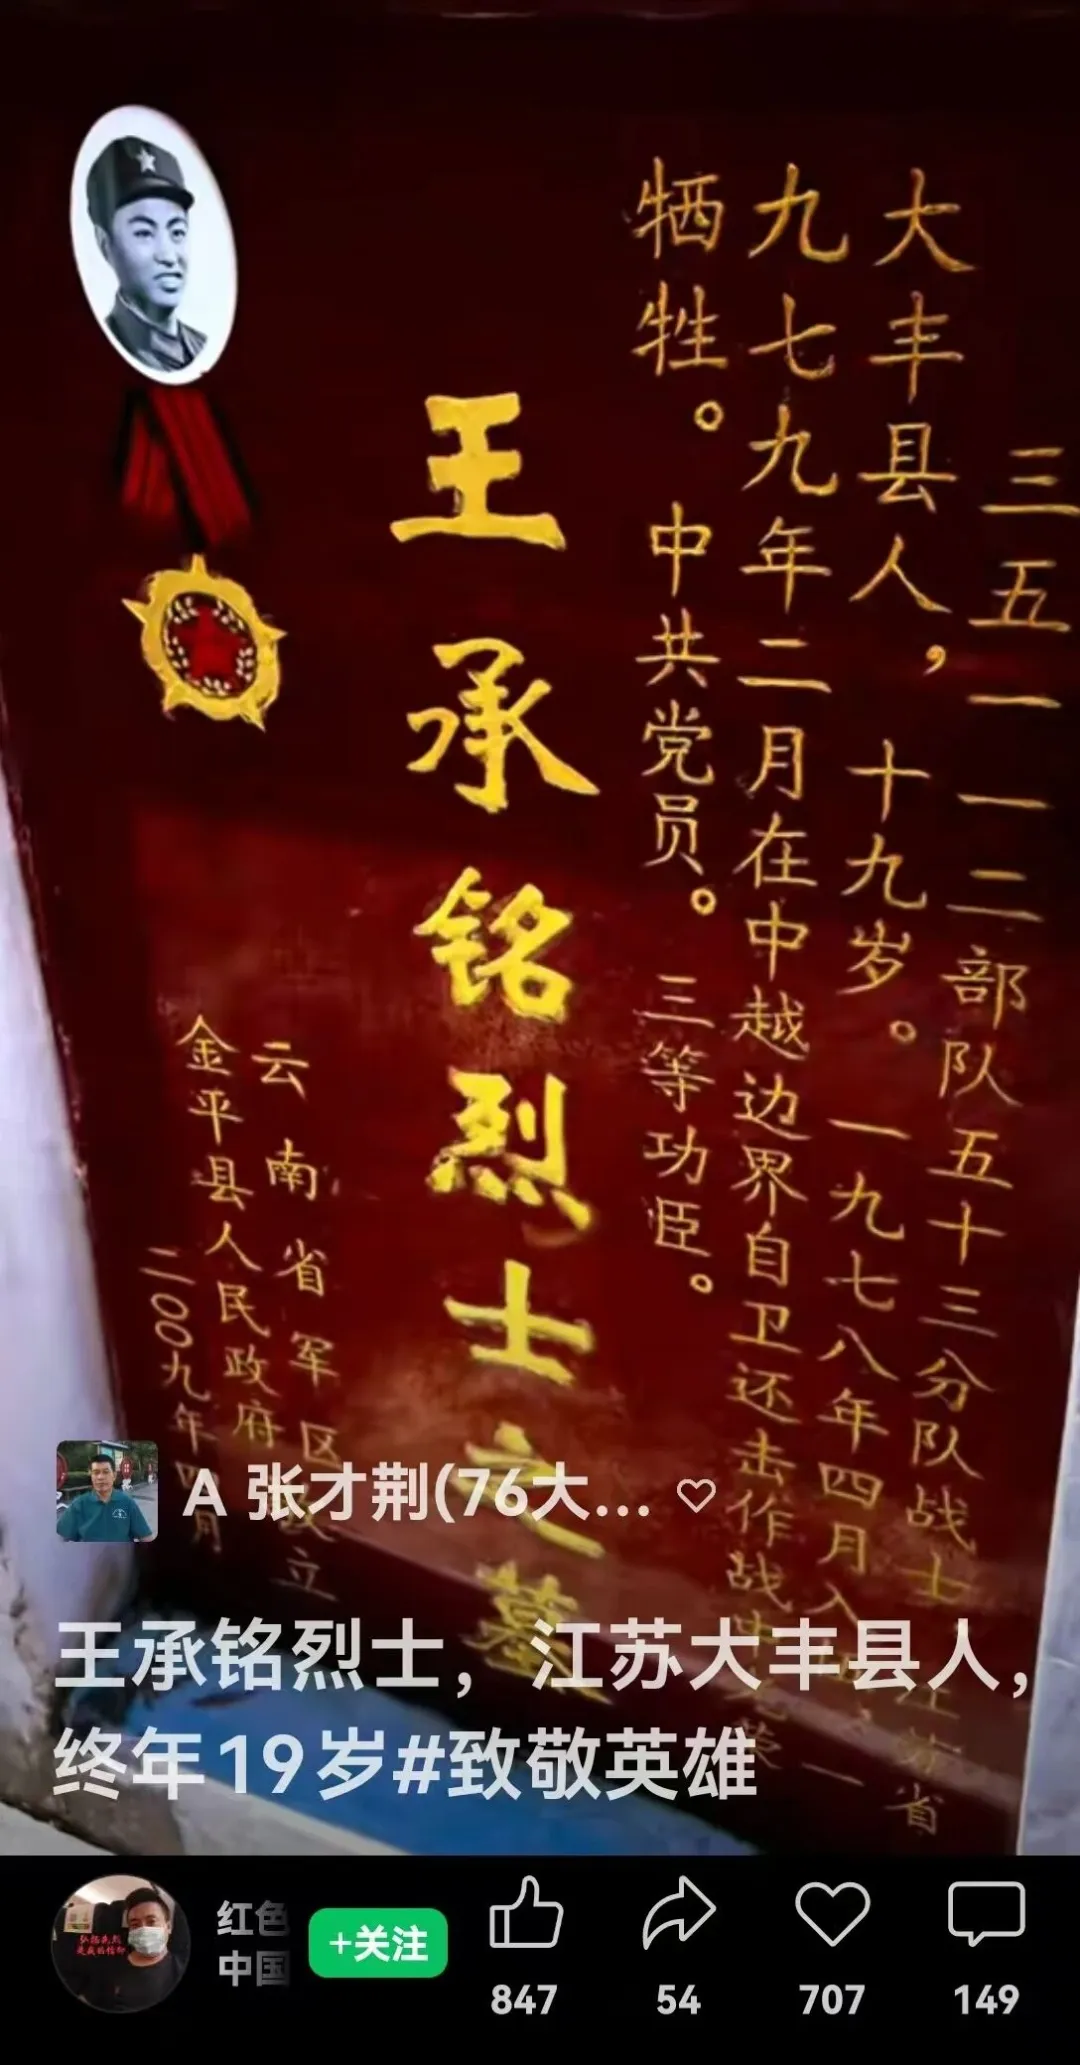 三五一一二部队五十三分队战士 江苏省
大丰县人，十九岁。一九七八年四月入 一
九七九年二月在中越边界自卫还击作战中 荣
牺牲。中共党员。三等功臣。
王承铭烈士之墓
云南省军区 立
金平县人民政府
二〇〇九年四月
A 张才荆(76大...
王承铭烈士，江苏大丰县人，
终年19岁#致敬英雄
红色
中国
+关注
847
54
707
149